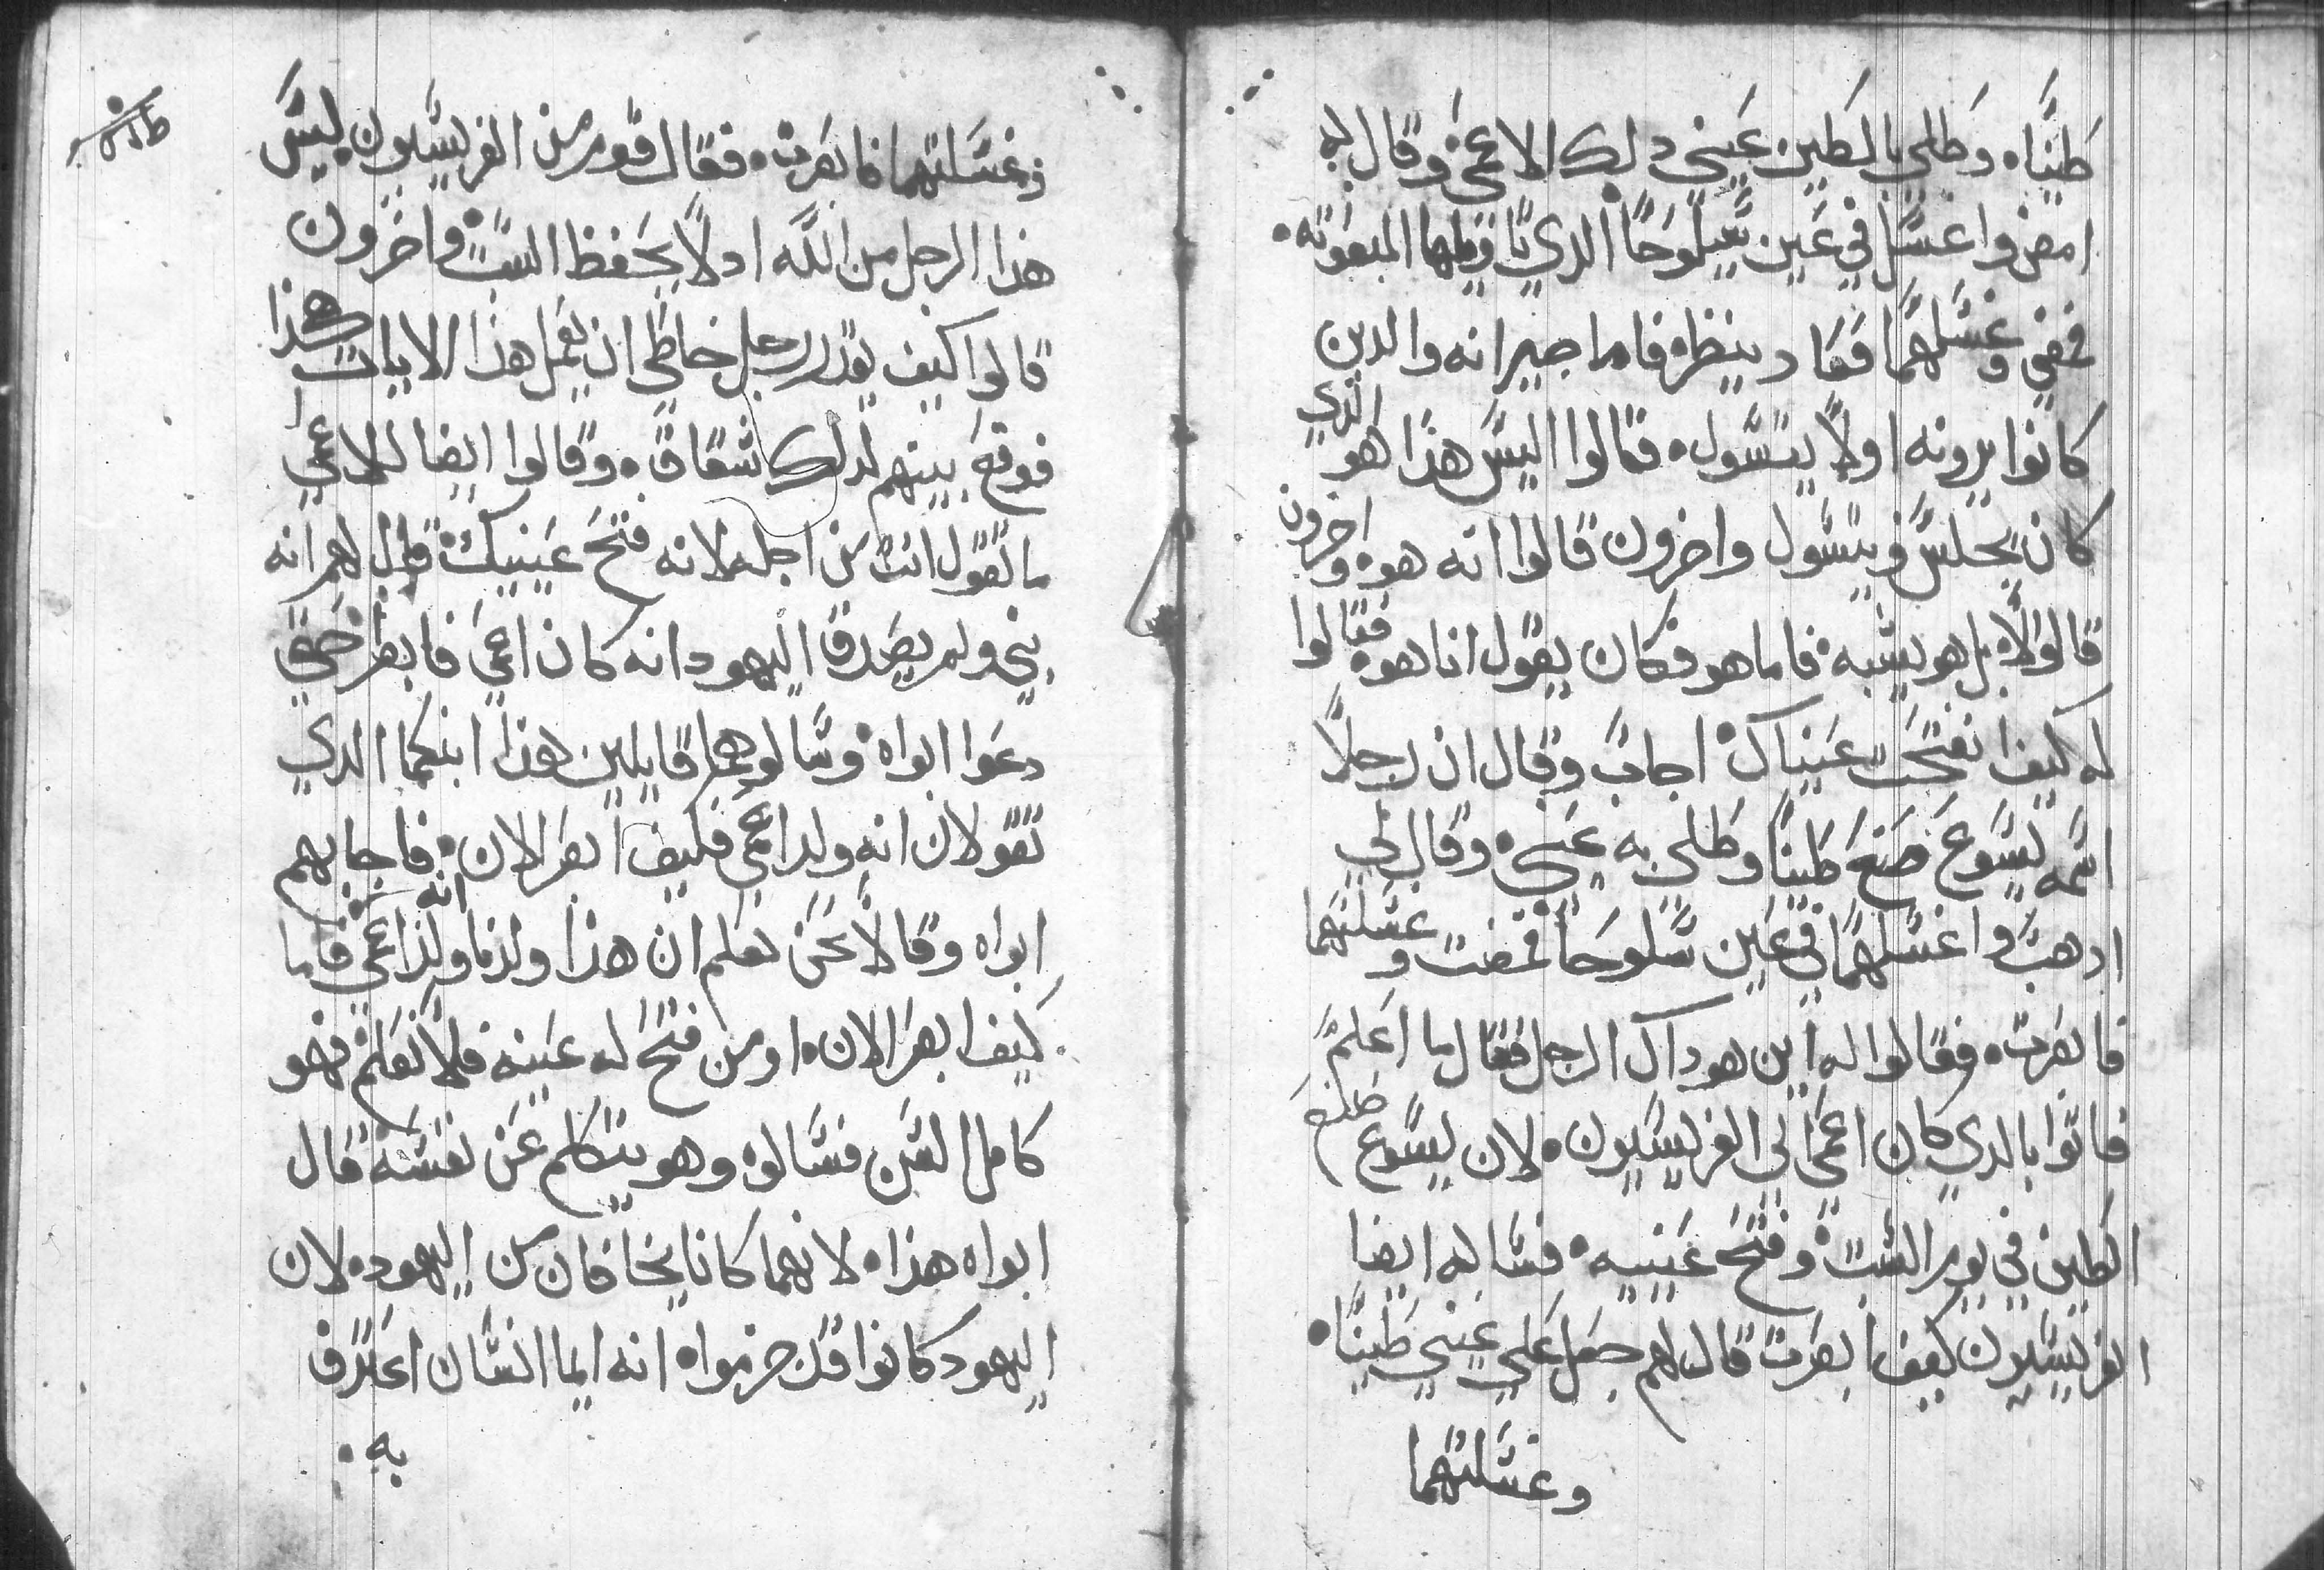 طينًا. وطلي بالطين عيني دلك الاعمي وقال له
امض واغسل في عين سيلوحا الدي تاويلها المبعوته.
فمضي وغسلهما فعاد ينظر. فاما جيرانه والدين
كانوا يرونه اولًا يتسول. قالوا اليس هذا هو الذي
كان يجلس ويتسول واخرون قالوا انه هو. واخرون
قالوا لا. بل هو يشبه. فاما هو فكان يقول انا هو. فقالوا
له كيف انفتحت عيناك. اجاب وقال ان رجلًا
اسمه يسوع صنع طينًا وطلي به عيني. وقال لي
ادهب واغسلهما في عين سلوحا فمضت وغسلتهما
فابصرت. فقالوا له اين هو داك الرجل فقال ما اعلم
فاتوا بالدي كان اعمي الي الفريسيون. لان يسوع صنع
الطين في يوم السبت. وفتح عينيه. فساله ايضا
الفريسيون كيف ابصرت قال لهم جعل علي عيني طينًا.
وغسلتهما
وغسلتهما فابصرت. فقال قوم من الفريسيون. ليس
هذا الرجل من الله اد لا يحفظ السبت. واخرون
قالوا كيف يقدر رجل خاطي ان يعمل هذا الايات هكذا
فوقع بينهم لدلك شقاق. وقالوا ايضا للاعمي
ما تقول انت من اجله لانه فتح عينيك. قال لهم انه
نبي ولم يصدقا اليهود انه كان اعمي فابصر حتي
دعوا ابواه. وسالوهما قايلين هذا ابنكما الدي
تقولان انه ولد اعمي فكيف ابصر الان. فاجابهم
ابواه وقالا نحن نعلم ان هذا ولدنا وانه ولد اعمي. فاما
كيف ابصر الان. او من فتح له عينيه فلا نعلم. فهو
كامل السن فسالوه وهو يتكلم عن نفسه. قال
ابواه هذا. لانهما كانا يخافان من اليهود. لان
اليهود كانوا قد حرموا. انه ايما انسان اعترف
به.